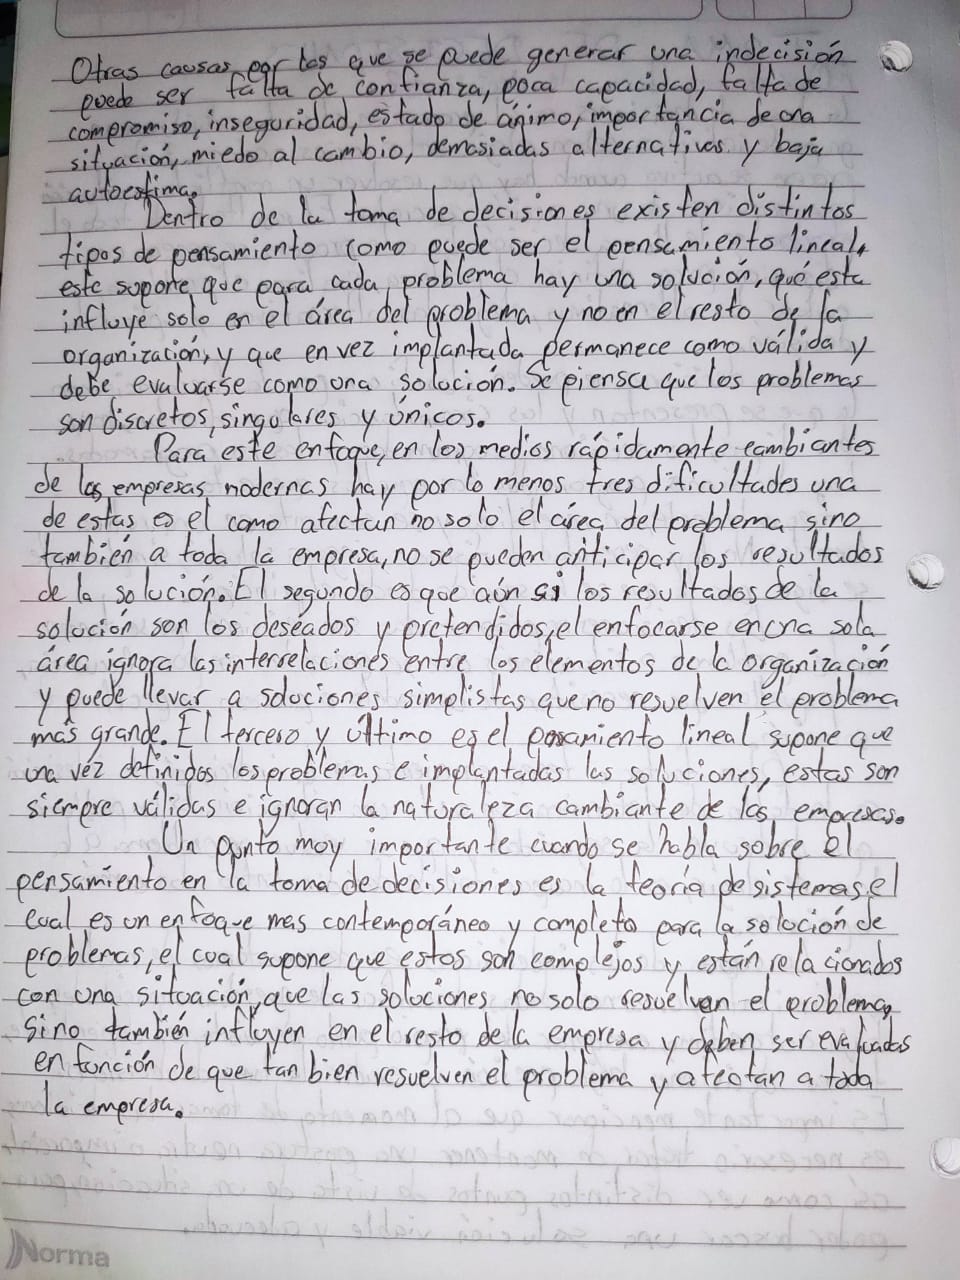 Otras causas por las que se puede generar una indecisión
puede ser falta de confianza, poca capacidad, falta de
compromiso, inseguridad, estado de ánimo, importancia de una
situación, miedo al cambio, demasiadas alternativas y baja
autoestima.
Dentro de la toma de decisiones existen distintos
tipos de pensamiento como puede ser el pensamiento lineal,
este supone que para cada problema hay una solución, qué esta
influye solo en el área del problema y no en el resto de la
organización, y que en vez implantada permanece como válida y
debe evaluarse como una solución. Se piensa que los problemas
son discretos, singulares y únicos.
Para este enfoque, en los medios rápidamente cambiantes
de las empresas modernas hay por lo menos tres dificultades una
de estas es el como afectan no solo el área del problema sino
también a toda la empresa, no se pueden anticipar los resultados
de la solución. El segundo es que aún si los resultados de la
solución son los deséados y pretendidos, el enfocarse en una sola
área ignora las interrelaciones entre los elementos de la organización
y puede llevar a soluciones simplistas que no resuelven el problema
más grande. El tercero y último es el pensamiento lineal supone que
una véz definidos los problemas e implantadas las soluciones, estas son
siempre válidas e ignoran la naturaleza cambiante de las empresas.
Un punto muy importante cuando se habla sobre el
pensamiento en la toma de decisiones es la teoría de sistemas, el
cual es un enfoque mas contemporáneo y completo para la solución de
problemas, el cual supone que estos son complejos y están relacionados
con una situación, que las soluciones no solo resuelven el problema,
sino también influyen en el resto de la empresa y deben ser evaluadas
en función de que tan bien resuelven el problema y afectan a toda
la empresa.
Norma